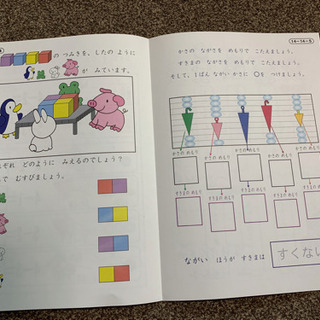 のつみきを、したの ように
が みています。
ぞれ どのように みえるのでしょう？
で むすびましょう。
14-14-③
かさの ながさを めもりで こたえましょう。
すきまの ながさを めもりで こたえましょう。
そして、いちばん ながい かさに ○を つけましょう。
かさの めもり かさの めもり かさの めもり かさの めもり かさの めもり
すきまの めもり すきまの めもり すきまの めもり すきまの めもり すきまの めもり
ながい ほうが すきまは すくない